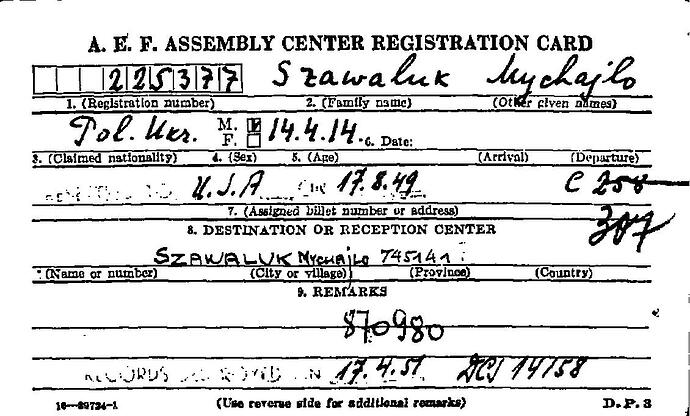 A. E. F. ASSEMBLY CENTER REGISTRATION CARD
225377 Szawaluk Mychajlo
1. (Registration number) 2. (Family name) (Other given names)
Pol. Ukr. M. F. 14.4.14. 6. Date:
3. (Claimed nationality) 4. (Sex) 5. (Age) (Arrival) (Departure)
U.S.A 17.8.49 C 258
7. (Assigned billet number or address)
387
8. DESTINATION OR RECEPTION CENTER
SZAWALUK Mychajlo 745141
(Name or number) (City or village) (Province) (Country)
9. REMARKS
870980
RECORDS IN 17.4.51 14/58
16—39724-1 (Use reverse side for additional remarks) D.P. 3